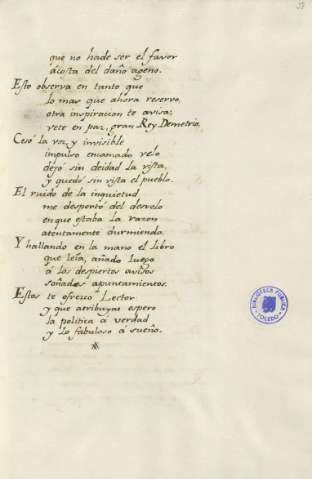 que no hade ser el favor
à costa del daño ageno.
Esto observa en tanto que
lo mas que ahora reservo,
otra inspiracion te avisa;
vete en paz, gran Rey Demetrio.
Cesó la voz y invisible
impulso encamado velo
dejó sin deidad la vista,
y quedó sin vista el pueblo.
El ruido de la inquietud
me despertó del desvelo
en que estaba la razon
atentamente durmiendo.
Y hallando en la mano el libro
que leía, añado luego
á los despiertos avisos
soñados apuntamientos.
Estos te ofrezco Lector
y que atribuyas espero
la politica á verdad
y lo fabuloso á sueño.
BIBLIOTECA PUBLICA
TOLEDO